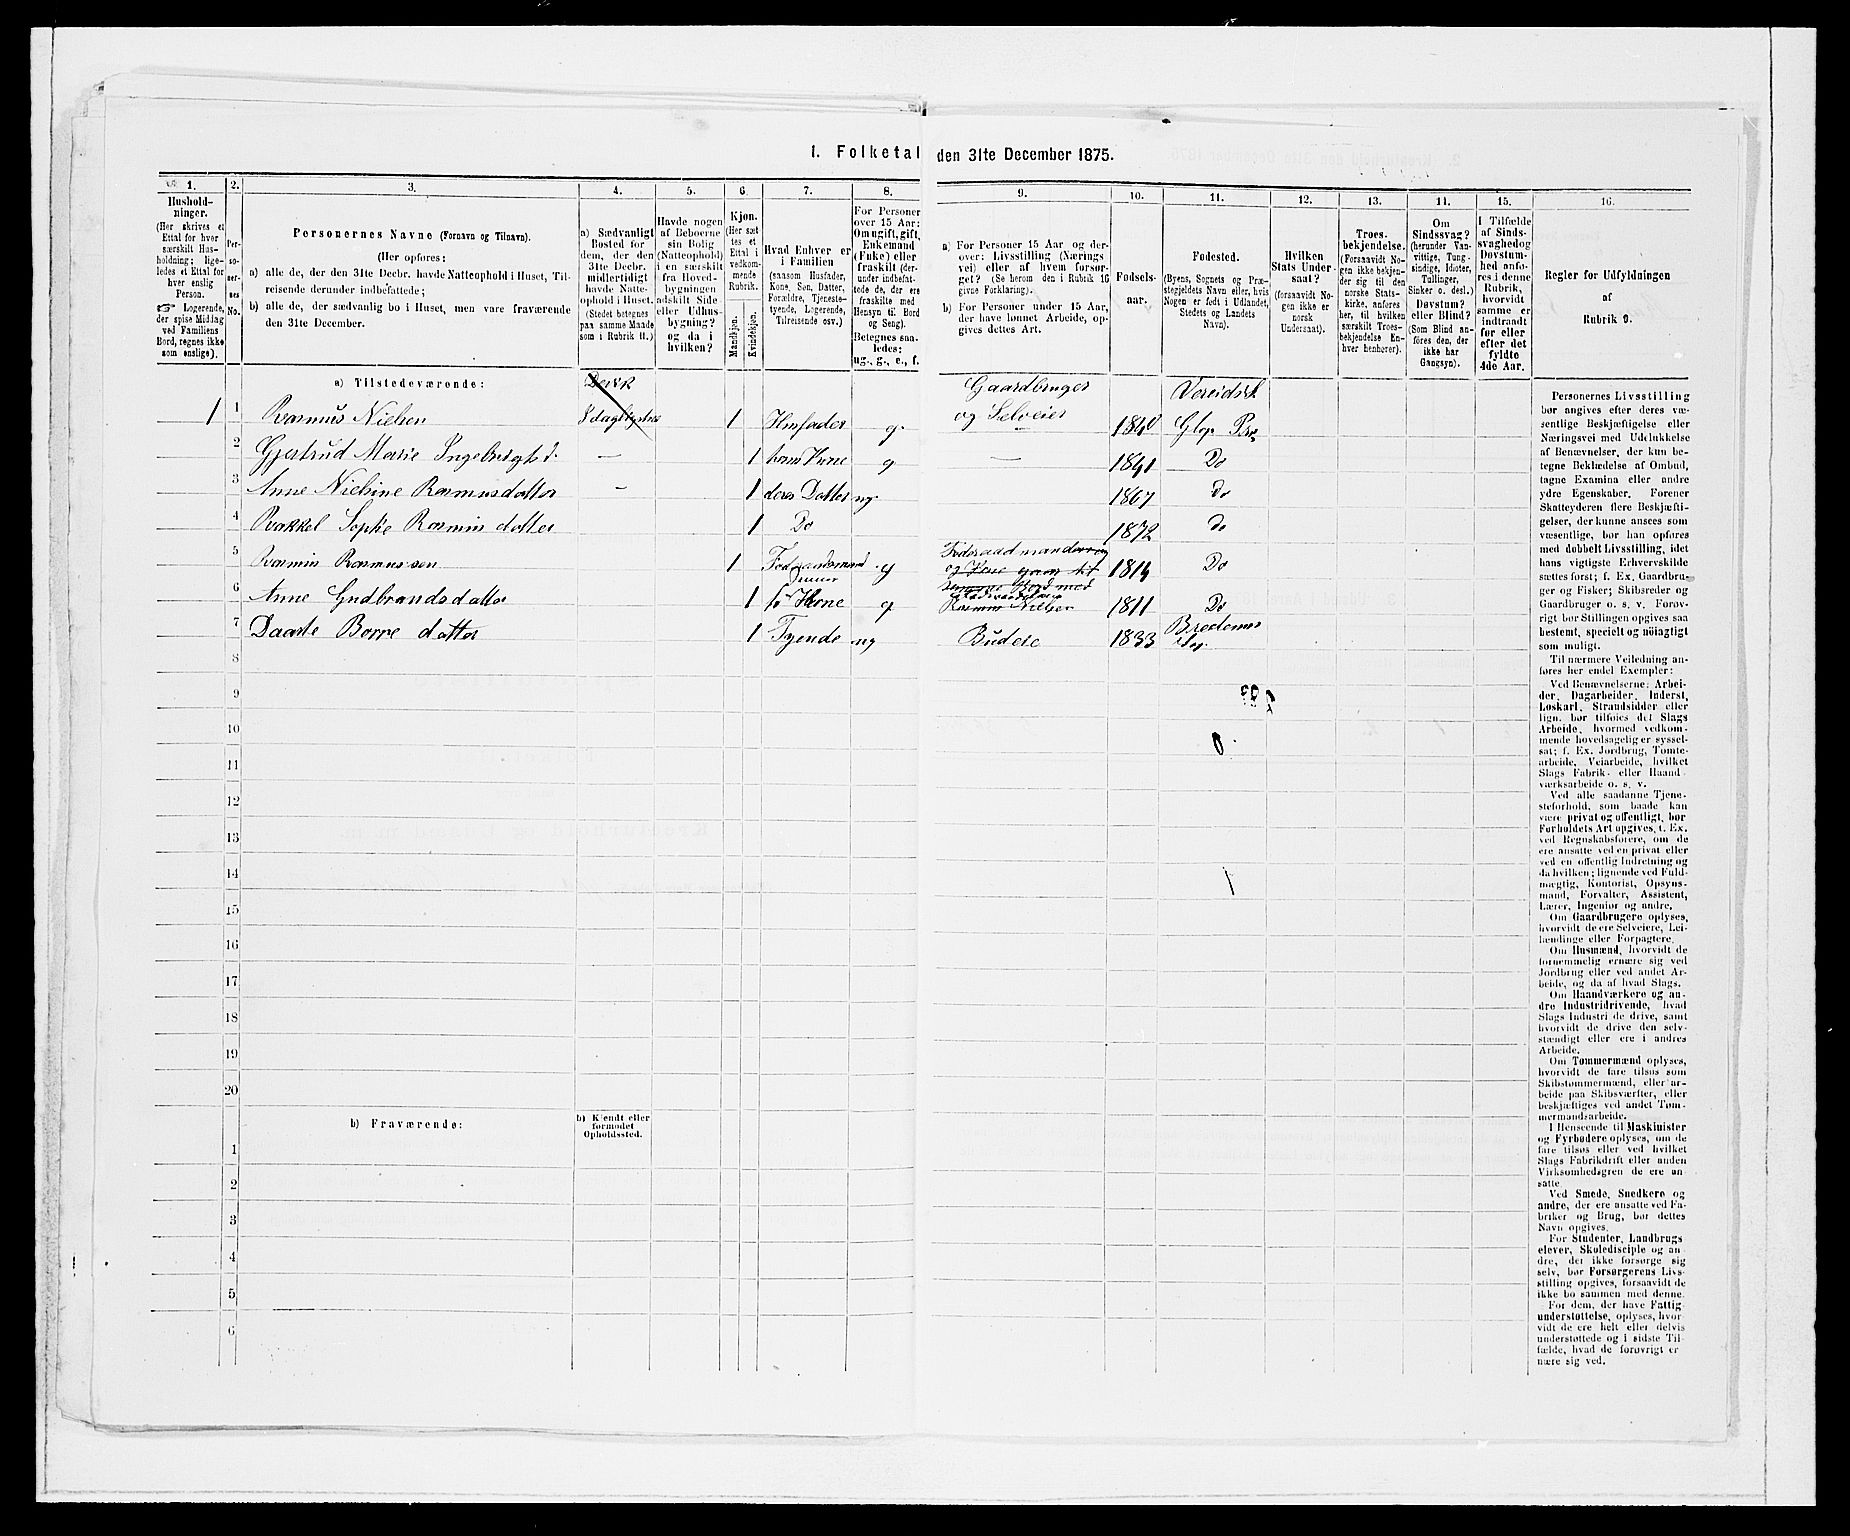 1. Folketal den 31te December 1875.
1.
Hushold-
ninger.
(Her skrives et
Ettal for hver
særskilt Hus-
holdning; lige-
ledes et Ettal for
hver enslig
Person.
Logerende,
der spise Middag
ved Familiens
Bord, regnes ikke
som enslige).
2.
Per-
so-
ner-
nes
No.
3.
Personernes Navne (Fornavn og Tilnavn).
(Her opføres:
a) alle de, der den 31te Decbr. havde Natteophold i Huset, Til-
reisende derunder indbefattede;
b) alle de, der sædvanlig bo i Huset, men vare fraværende
den 31te December.
4.
a) Sædvanligt
Bosted for
dem, der den
31te Decbr.
midlertidigt
havde Natte-
ophold i Huset.
(Stedet betegnes
paa samme Maade
som i Rubrik 11.)
5.
Havde nogen
af Beboerne
sin Bolig
(Natteophold)
i en særskilt
fra Hoved-
bygningen
adskilt Side-
eller Udhus-
bygning?
og da i
hvilken?
6.
Kjøn.
(Her sæt-
tes et
Ettal i
vedkom-
mende
Rubrik.
Mandkjøn.
Kvindekjøn.
7.
Hvad Enhver er
i Familien
(saasom Husfader,
Kone, Søn, Datter,
Forældre, Tjeneste-
tyende, Logerende,
Tilreisende osv.)
8.
For Personer
over 15 Aar:
Om ugift, gift,
Enkemand
(Enke) eller
fraskilt (der-
under indbefat-
tede de, der ere
fraskilte med
Hensyn til Bord
og Seng).
Betegnes saa-
ledes:
ug., g., e., f.
9.
a) For Personer 15 Aar og der-
over: Livsstilling (Nærings-
vei) eller af hvem forsør-
get? (Se herom den i Rubrik 16
givne Forklaring).
b) For Personer under 15 Aar,
der have lønnet Arbeide, op-
gives dettes Art.
10.
Fødsels-
aar.
11.
Fødested.
(Byens, Sognets og Præ-
stegjeldets Navn eller, hvis
Nogen er født i Udlandet,
Stedets og Landets
Navn).
12.
Hvilken
Stats Under-
saat?
(forsaavidt No-
gen ikke er
norsk
Undersaat).
13.
Troes-
bekjendelse.
(Forsaavidt No-
gen ikke bekjen-
der sig til den
norske Stats-
kirke, anføres
her, til hvilken
særskilt Troes-
bekjendelse En-
hver henhører).
11.
Om
Sindssvag?
(herunder Van-
vittige, Tung-
sindige, Idioter,
Tullinger,
Sinker o. desl.)
Døvstum?
eller Blind?
(Som Blind an-
føres den, der
ikke har
Gangsyn).
15.
I Tilfælde
af Sinds-
svaghed og
Døvstum-
hed anfø-
res i denne
Rubrik,
hvorvidt
samme er
indtraadt
før eller
efter det
fyldte
4de Aar.
16.
Regler for Udfyldningen
af
Rubrik 9.
a) Tilstedeværende:
Gaardbruger
1 1 Rasmus Nielsen 1 Husfader g. og Selveier 1840 Glop. Præ
2 Gjertrud Marie Ingebrigtsd. — 1 hans Kone g — 1841 Do
3 Anne Nielsine Rasmusdatter — 1 deres Datter ug. 1867 Do
4 Rakkel Sophie Rasmus datter 1 Do 1872 Do
5 Rasmus Rasmussen 1 g 1814 Do
6 Anne Gudbrandsdatter 1 Kone g Rasmus Nielsen 1811 Do
7 Daarte Børre datter 1 Tyende ug Budeie 1833
8
9
10
11
12
13
14
15
16
17
18
19
20
b) Fraværende:
b) Kjendt eller
formodet
Opholdssted.
1
2
3
4
5
6
Personernes Livsstilling
bør angives efter deres væ-
sentlige Beskjæftigelse eller
Næringsvei med Udelukkelse
af Benævnelser, der kun be-
tegne Beklædelse af Ombud,
tagne Examina eller andre
ydre Egenskaber. Forener
Skatteyderen flere Beskjæfti-
gelser, der kunne ansees som
væsentlige, bør han opføres
med dobbelt Livsstilling, idet
hans vigtigste Erhvervskilde
sættes først; f. Ex. Gaardbru-
ger og Fisker; Skibsreder og
Gaardbruger o. s. v. Forøv-
rigt bør Stillingen opgives saa
bestemt, specielt og nøiagtigt
som muligt.
Til nærmere Veiledning an-
føres her endel Exempler:
Ved Benævnelserne: Arbei-
der, Dagarbeider, Inderst,
Løskarl, Strandsidder eller
lign. bør tilføies det Slags
Arbeide, hvormed vedkom-
mende hovedsagelig er syssel-
sat; f. Ex. Jordbrug, Tømte-
arbeide, Veiarbeide, hvilket
Slags Fabrik- eller Haand-
værksarbeide o. s. v.
Ved alle saadanne Tjene-
steforhold, som baade kan
være privat og offentligt, bør
Forholdets Art opgives, t. Ex.
ved Regnskabsførere, om de
ere ansatte ved en privat eller
ved en offentlig Indretning og
da hvilken; lignende ved Fuld-
mægtig, Kontorist, Opsyns-
mand, Forvalter, Assistent,
Lærer, Ingeniør og andre.
Om Gaardbrugere oplyses,
hvorvidt de ere Selveiere, Lei-
lændinge eller Forpagtere.
Om Husmænd, hvorvidt de
fornemmelig ernære sig ved
Jordbrug eller ved andet Ar-
beide, og da af hvad Slags.
Om Haandværkere og an-
dre Industridrivende, hvad
Slags Industri de drive, samt
hvorvidt de drive den selv-
stændigt eller ere i andres
Arbeide.
Om Tømmermænd oplyses,
hvorvidt de fare tilsøs som
Skibstømmermænd, eller ar-
beide paa Skibsværfter, eller
beskjæftiges ved andet Tøm-
mermandsarbeide.
I Henseende til Maskinister
og Fyrbødere oplyses, om de
fare tilsøs eller ved hvilket
Slags Fabrikdrift eller anden
Virksomhedsgren de ere an-
satte.
Ved Smede, Snedkere og
andre, der ere ansatte ved Fa-
briker og Brug, bør dettes
Navn opgives.
For Studenter, Landbrugs-
elever, Skoledisciple og an-
dre, der ikke forsørge sig
selv, bør Forsørgerens Livs-
stilling opgives, forsaavidt de
ikke bo sammen med denne.
For dem, der have Fattig-
understøttelse, oplyses, hvor-
vidt de ere helt eller delvis
understøttede og i sidste Til-
fælde, hvad de forøvrigt er
nære sig ved.